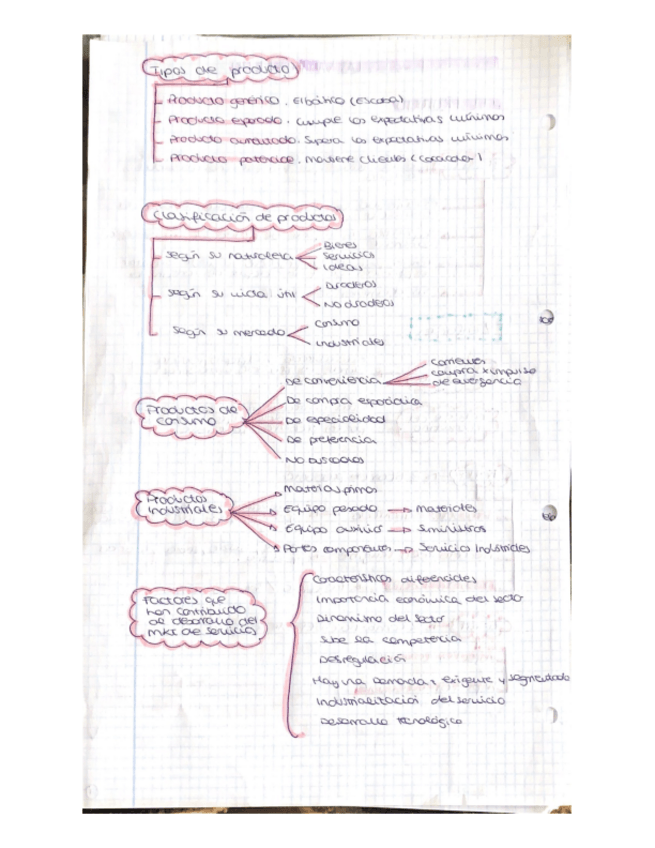 Tipos de producto
Producto genérico. El básico (Escoba)
Producto esperado. Cumple las expectativas mínimas
Producto aumentado. Supera las expectativas mínimas
Producto potencial. Mantiene clientes (cocacola)
Clasificación de productos
Según su naturaleza
Bienes
Servicios
Ideas
Según su vida útil
Duraderos
No duraderos
Según su mercado
Consumo
Industriales
Productos de
consumo
De conveniencia
Corrientes
compra x impulso
de emergencia
De compra esporádica
De especialidad
De preferencia
No buscados
Productos
industriales
Materias primas
Equipo pesado → materiales
Equipo auxiliar → Suministros
Partes componentes → Servicios Industriales
Factores que
han contribuido
al desarrollo del
mkt de servicios
Características diferenciales
Importancia económica del sector
Dinamismo del sector
Sube la competencia
Desregulación
Hay una demanda + exigente y segmentada
Industrialización del servicio
Desarrollo tecnológico